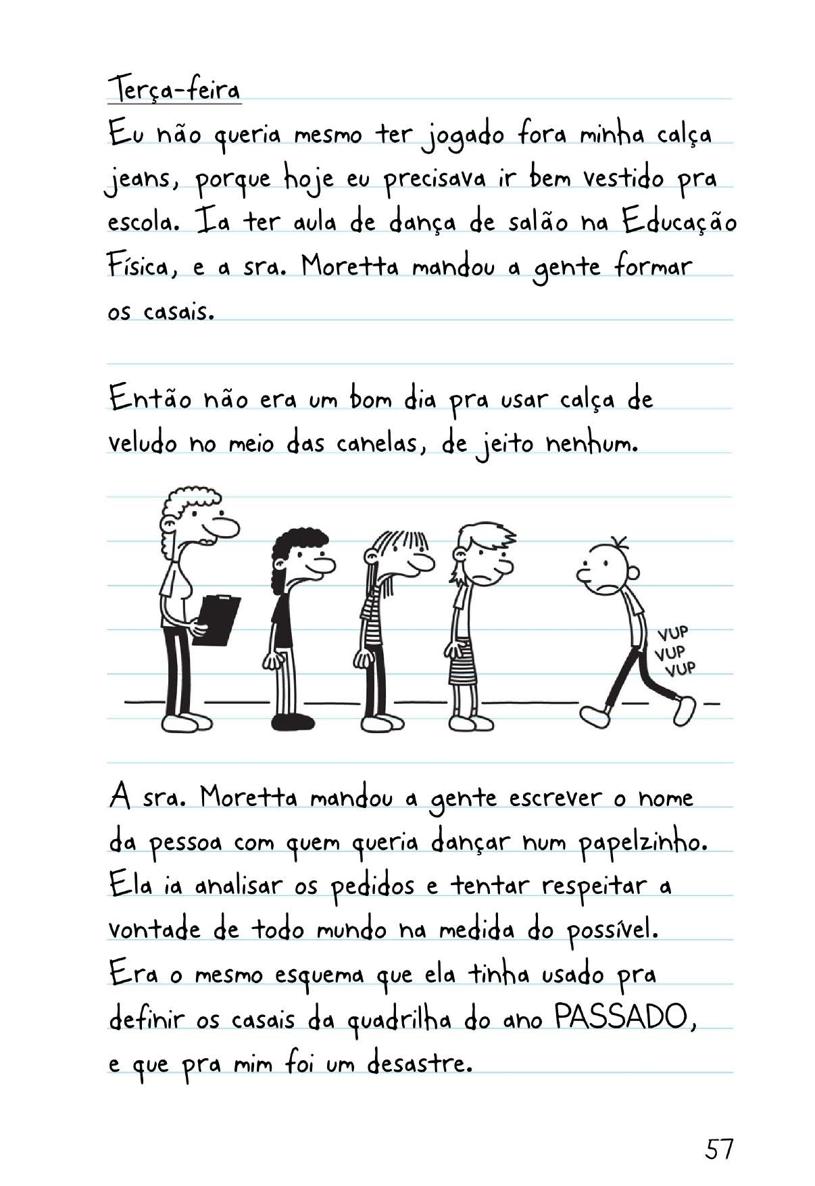 Terça-feira
Eu não queria mesmo ter jogado fora minha calça
jeans, porque hoje eu precisava ir bem vestido pra
escola. Ia ter aula de dança de salão na Educação
Física, e a sra. Moretta mandou a gente formar
os casais.
Então não era um bom dia pra usar calça de
veludo no meio das canelas, de jeito nenhum.
VUP
VUP
VUP
A sra. Moretta mandou a gente escrever o nome
da pessoa com quem queria dançar num papelzinho.
Ela ia analisar os pedidos e tentar respeitar a
vontade de todo mundo na medida do possível.
Era o mesmo esquema que ela tinha usado pra
definir os casais da quadrilha do ano PASSADO,
e que pra mim foi um desastre.
57